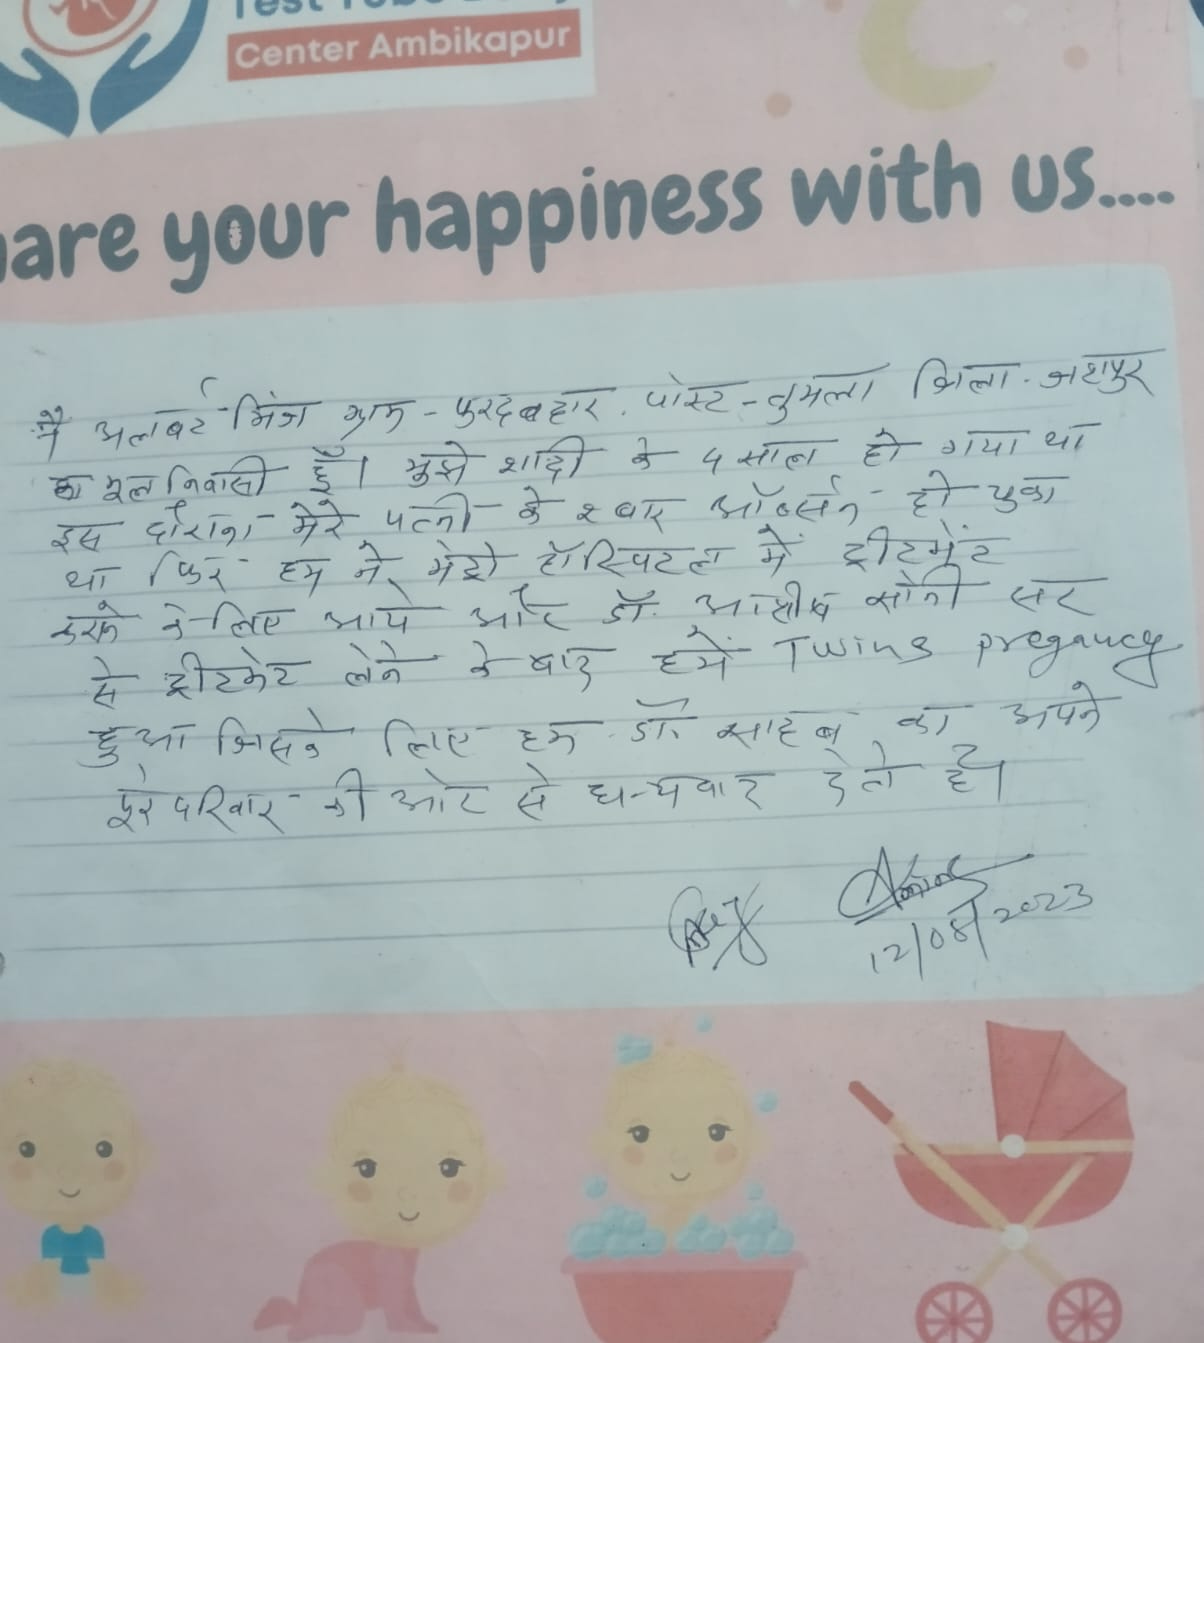 Center Ambikapur
are your happiness with us....
मैं अलबर्ट मिंज ग्राम - फुरदबहार. पोस्ट - तुमला जिला - जशपुर
का मूल निवासी हूँ। मुझे शादी के 4 साल हो गया था
इस दौरान मेरे पत्नी के 2 बार ऑबर्सन हो चुका
था फिर हम ने मेट्रो हॉस्पिटल में ट्रीटमेंट
कराने के लिए आये और डॉ. आशीष सोनी सर
से ट्रीटमेंट लेने के बाद हमें Twins pregancy
हुआ जिसके लिए हम डॉ. साहब का अपने
पूरे परिवार की ओर से धन्यवाद देते हैं।
12/08/2023